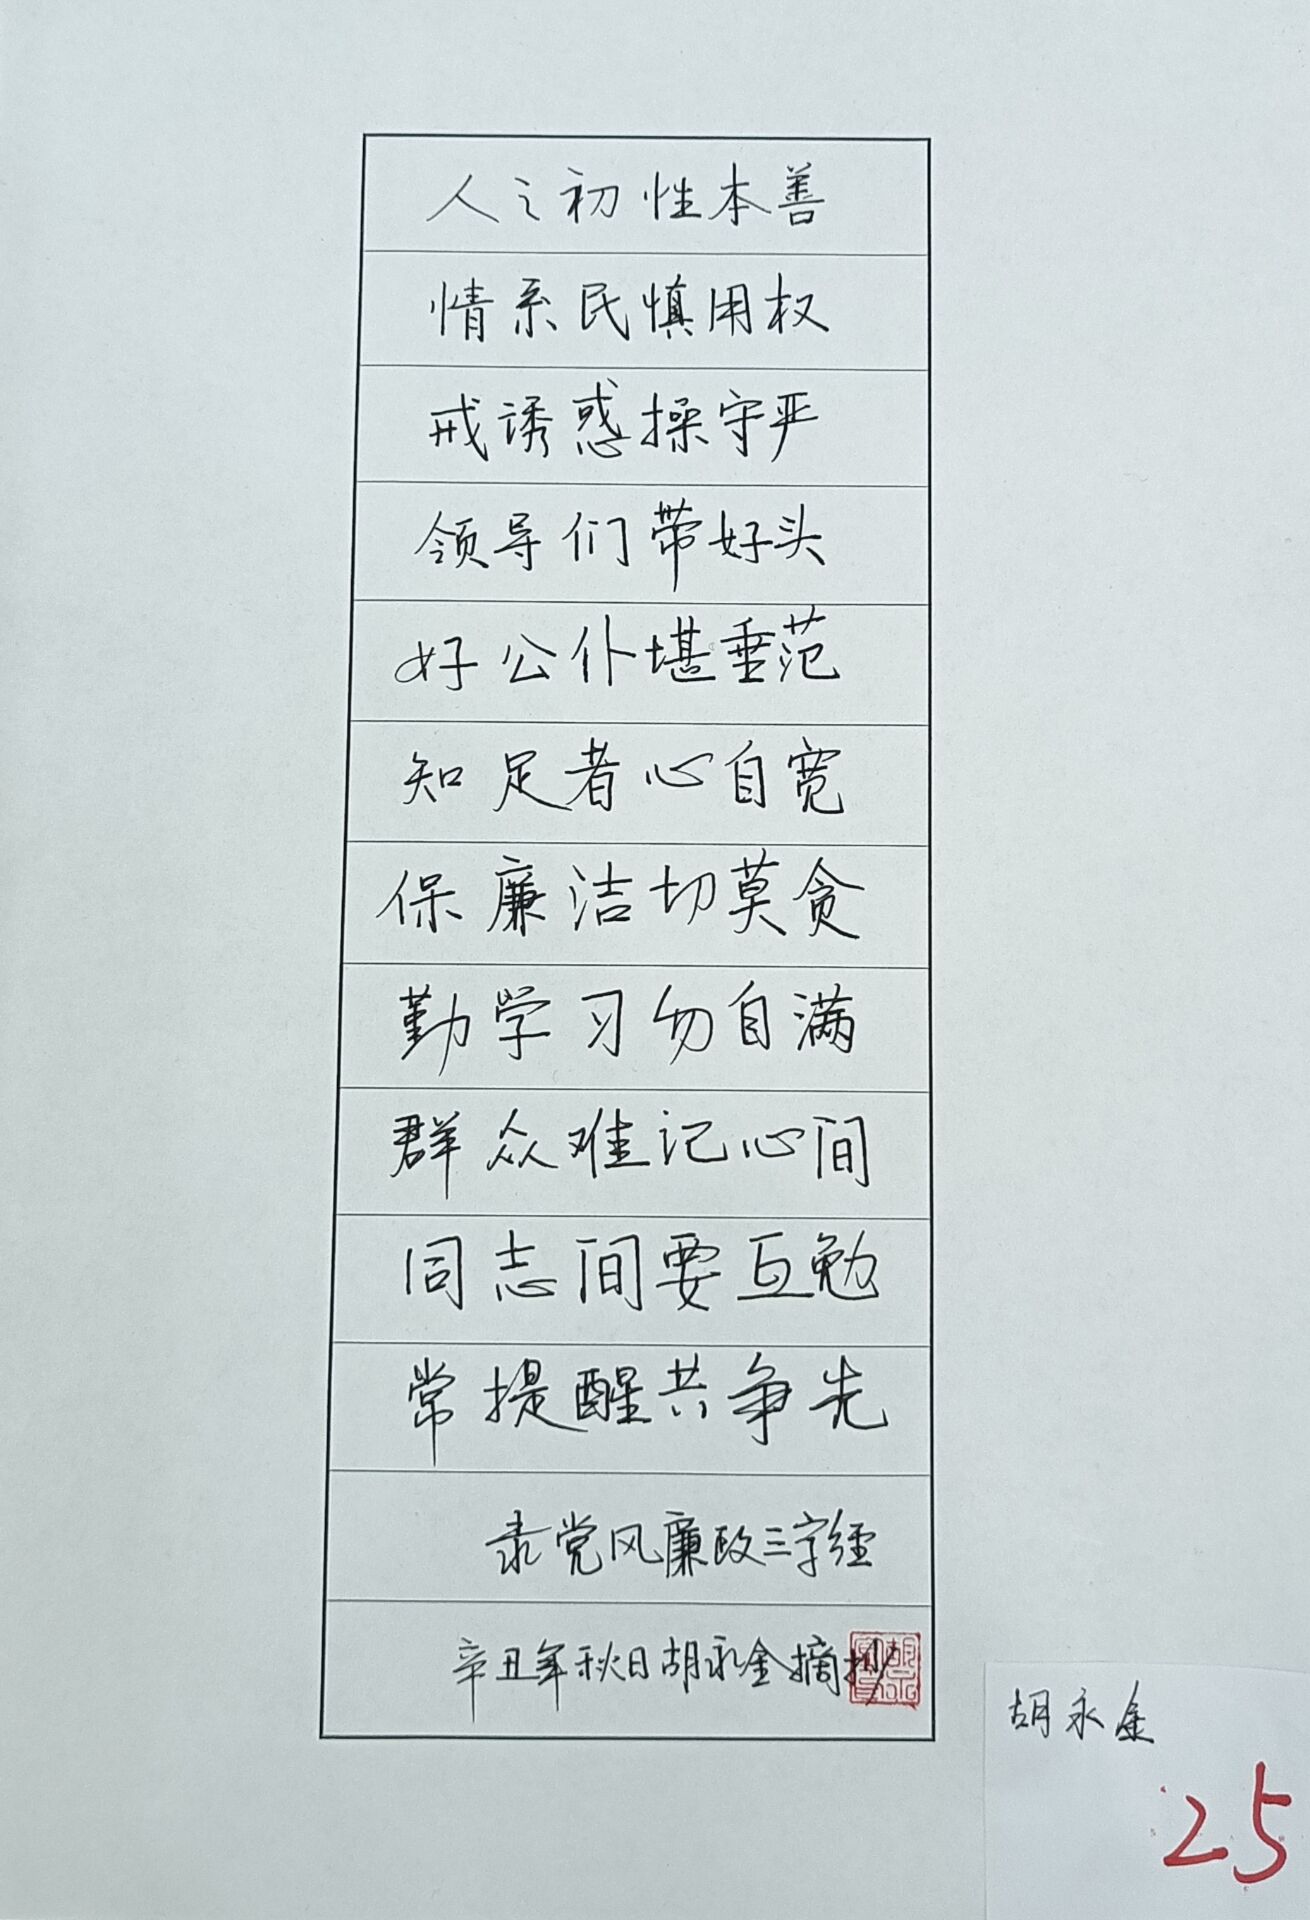 人之初性本善
情系民慎用权
戒诱惑操守严
领导们带好头
好公仆堪垂范
知足者心自宽
保廉洁切莫贪
勤学习勿自满
群众难记心间
同志间要互勉
常提醒共争先
录党风廉政三字经
辛丑年秋日胡永金摘抄
胡永金
25